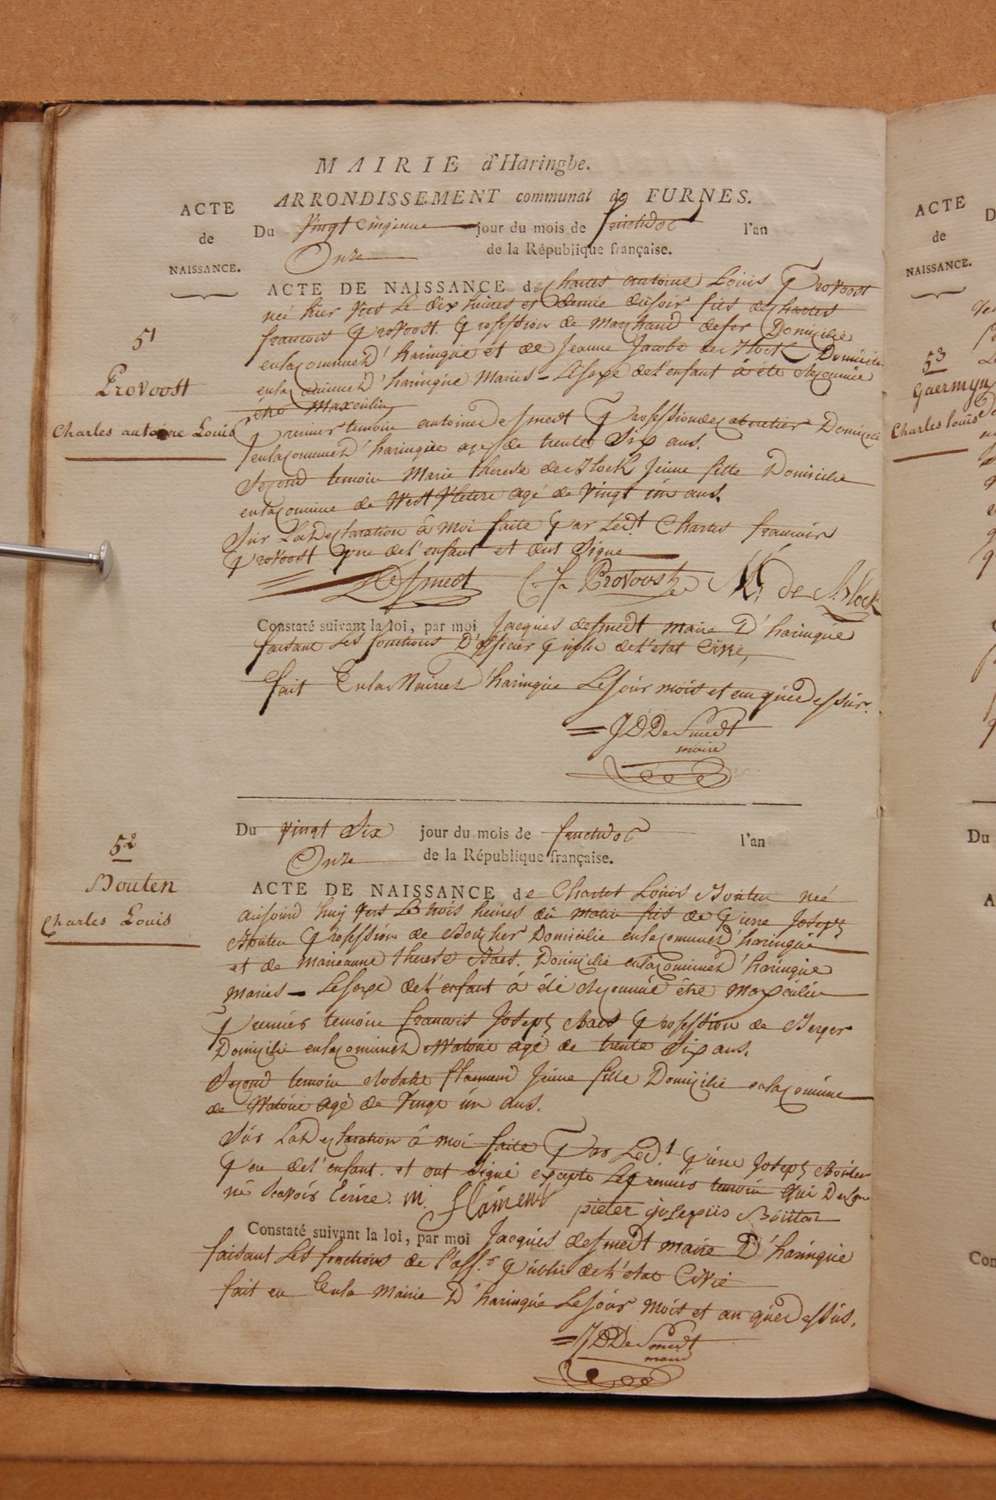 MAIRIE d'Haringhe.
ARRONDISSEMENT communal de FURNES.
ACTE
de
NAISSANCE.
Du vingt Cinqieme jour du mois de fructidor l'an
Onze de la République française.
51
Provoost
Charles antoine Louis
ACTE DE NAISSANCE de Charles antoine Louis Provoost
né hier vers Le dix heures et demie du soir fils de Charles
francois Provoost Profession de Marchand de fer Domicilie
en la Commune d'haringue et de Jeanne Jacobe de Block Domicilie
en la Commune d'haringue Maries - Le Sexe de l'enfant à été reconnue
etre Maxculin
Premier temoin antoine desmedt Profession de cabaretier Domicilie
en la Commune d'haringue agé de trente Six ans.
Second temoin Marie therese de Block Jeune fille Domicilie
en la Commune de West Vletere agé de Vingt un ans.
Sur La Declaration à Moi faite Par Led.t Charles francois
Provoost Pere de l'enfant et ont Signé
Desmedt C. F. Provoost M. de Block
Constaté suivant la loi, par moi Jacques desmedt maire D'haringue
faisant Les fonctions D'officier Public de l'etat Civil,
fait En la Mairie d'haringue Le Jour mois et an que Dessus.
JD De Smedt
maire
Du vingt Six jour du mois de fructidor l'an
Onze de la République française.
52
Bouten
Charles Louis
ACTE DE NAISSANCE de Charles Louis Bouten né
aujourd'huy vers Le trois heures du matin fils de Pierre Joseph
Bouten Profession de Boucher Domicilie en la Commune d'haringue
et de Marieanne therese Baes. Domicilie en la Commune d'haringue
Maries - Le Sexe de l'enfant à été reconnué étre Maxculin
Premier temoin francois Joseph Baes Profession de Berger
Domicilie en la Commune de Watoue agé de trente Six ans.
Second temoin flamend Jeune fille Domicilie en la Commune
de Watoue agé de Vingt un ans.
Sur La Declaration à moi faite Par Led.t Pierre Joseph Bouten
Pere de l'enfant et ont Signé excepte Le Premier temoin Qui Declare
né Scavoir Ecrire. M. flamend pieter josepus Boutten
Constaté suivant la loi, par moi Jacques desmedt maire D'haringue
faisant Les fonctions de l'off.r Public de l'etat Civil
fait en En la Mairie D'haringue Le Jour Mois et an que Dessus.
JD De Smedt
maire
ACTE
de
NAISSANCE.
53
Gaermyn
Charles Louis
Du
A
Con